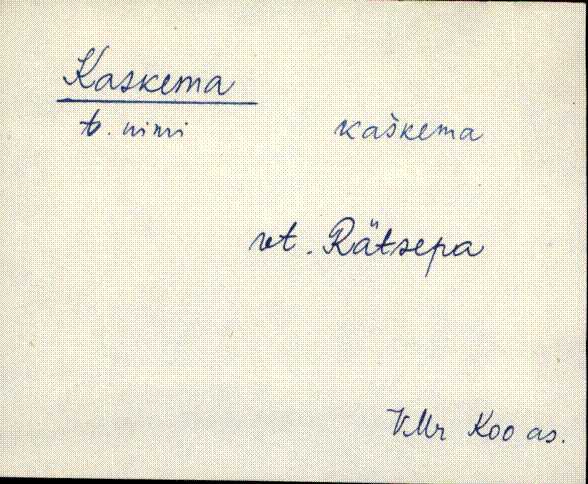 Kaskema
t. nimi kaškema
vt. Rätsepa
VMr Koo as.